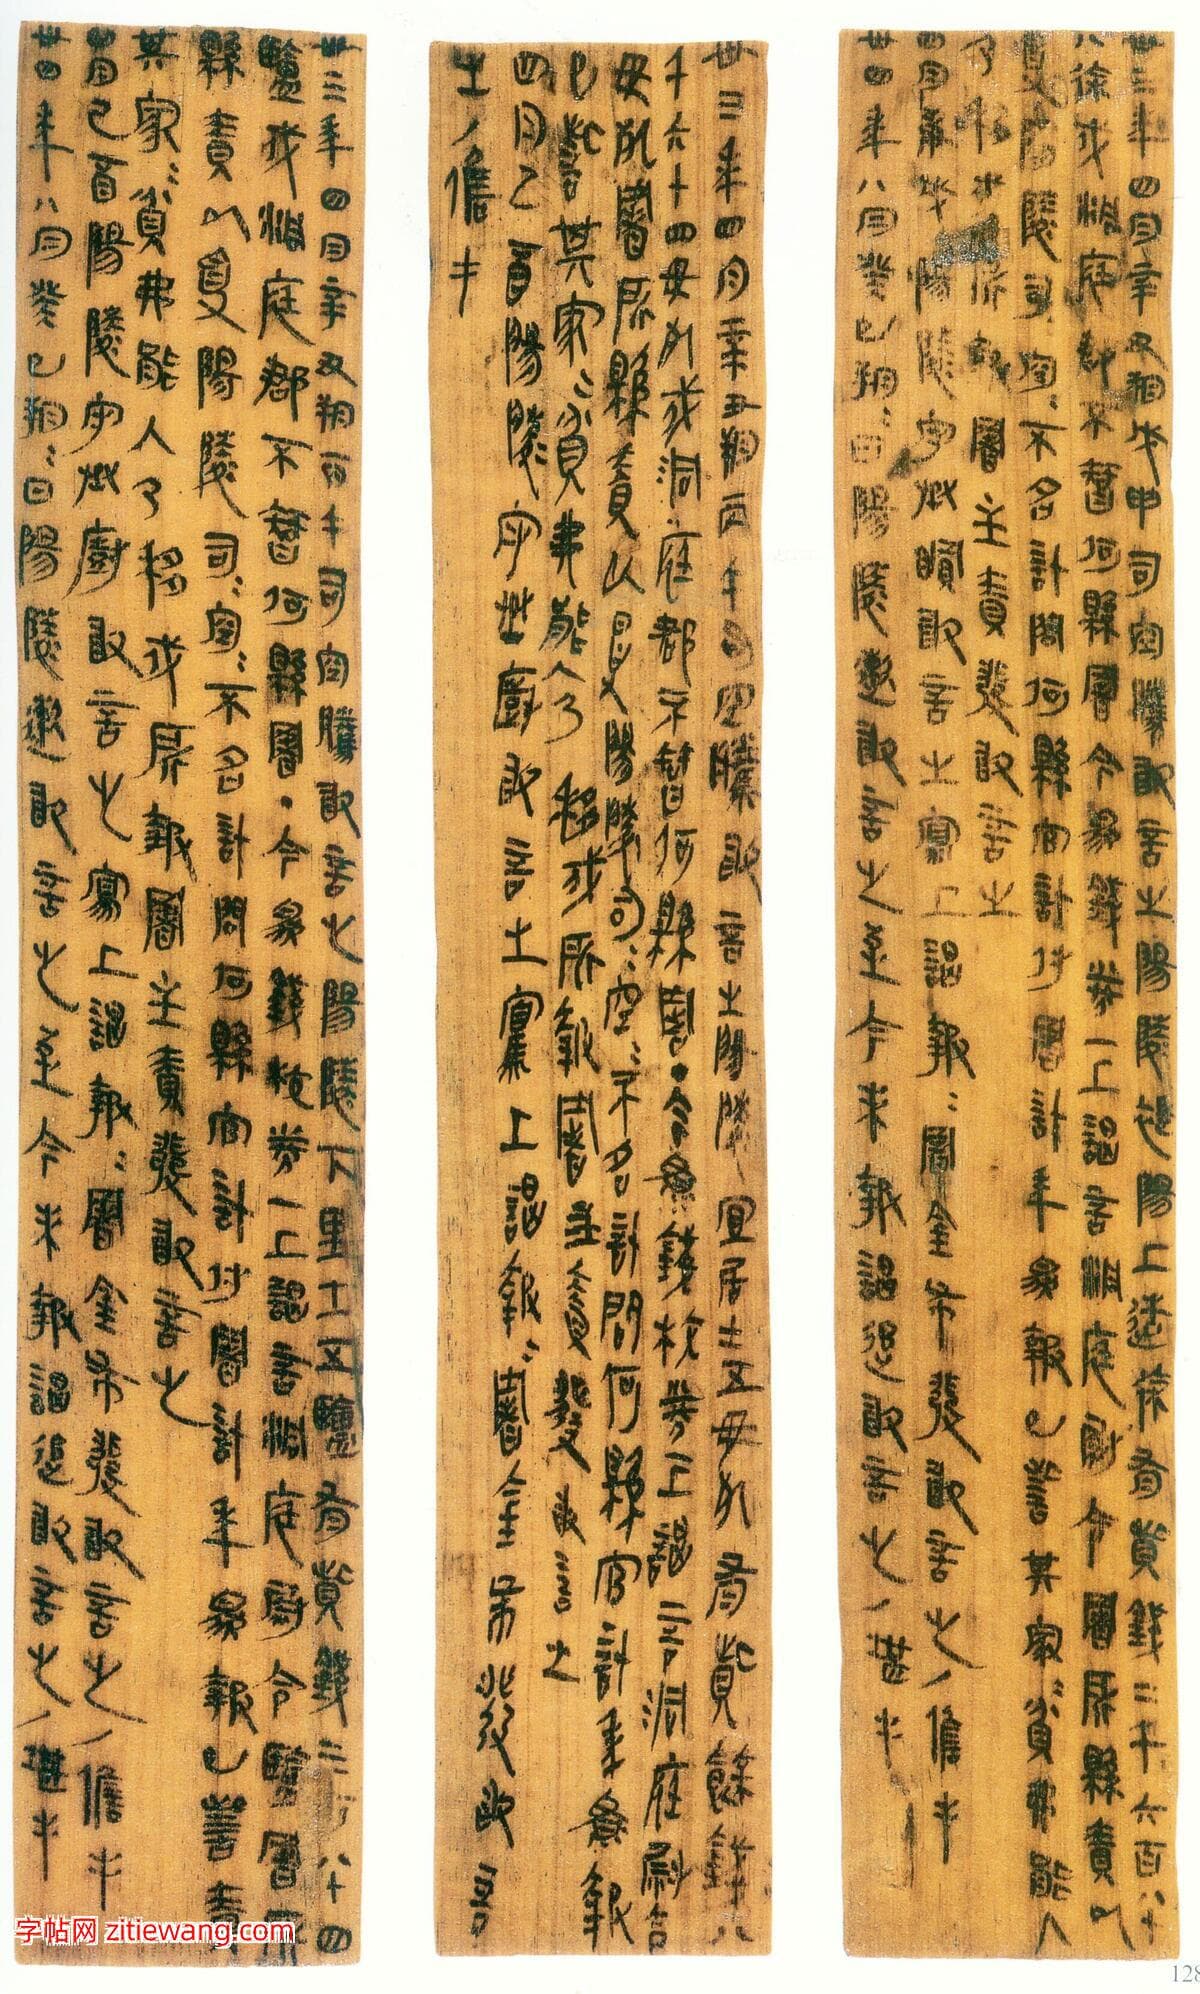 卅三年四月辛丑朔戊申司空騰敢言之陽陵褆陽上造徐有貲錢二千六百八十
八徐戍洞庭郡不智何縣署今為錢券一上謁言洞庭尉令署所縣責以
受陽陵司=空=不名計問何縣官計付署計年為報已訾其家=貧弗能入
乃移戍所報署主責發敢言之
四月庚戌陽陵守丞敢言之寫上謁報=署金布發敢言之/儋手
卅四年八月癸巳朔=日陽陵遫敢言之至今未報謁追敢言之/堪手
卅三年四月辛丑朔丙午司空騰敢言之陽陵宜居士五毋死有貲餘錢八
千六十四毋死戍洞庭郡不智何縣署·今為錢校券一上謁言洞庭尉令
毋死署所縣責以受陽陵司=空=不名計問何縣官計年為報
已訾其家=貧弗能入乃移戍所報署主責發敢言之
四月己酉陽陵守丞廚敢言之寫上謁報=署金布發敢言
之/儋手
卅三年四月辛丑朔丙午司空騰敢言之陽陵下里士五鹽有貲錢三百八十四
鹽戍洞庭郡不智何縣署·今為錢校券一上謁言洞庭尉令鹽署所
縣責以受陽陵司=空=不名計問何縣官計付署計年為報已訾責
其家=貧弗能入乃移戍所報署主責發敢言之
四月己酉陽陵守丞廚敢言之寫上謁報=署金布發敢言之/儋手
卅四年八月癸巳朔=日陽陵遫敢言之至今未報謁追敢言之/堪手
字帖网 zitiewang.com
128